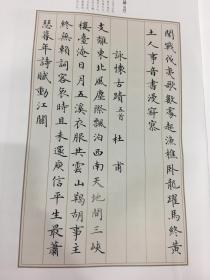 聞戰伐夷歌數處起漁樵臥龍躍馬終黃
土人事音書漫寂寥
詠懷古蹟五首 杜甫
支離東北風塵際飄泊西南天地間三峽
樓臺淹日月五溪衣服共雲山羯胡事主
終無賴詞客哀時且未還庾信平生最蕭
瑟暮年詩賦動江關